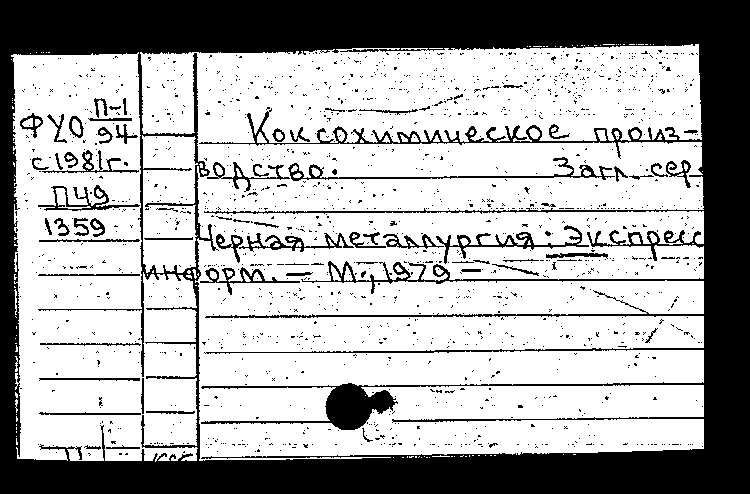 ФУО П-1/94
с 1981г.
П49
1359
Коксохимическое произ-
водство. Загл. сер.
Черная металлургия: Экспресс
информ. — М., 1979 —